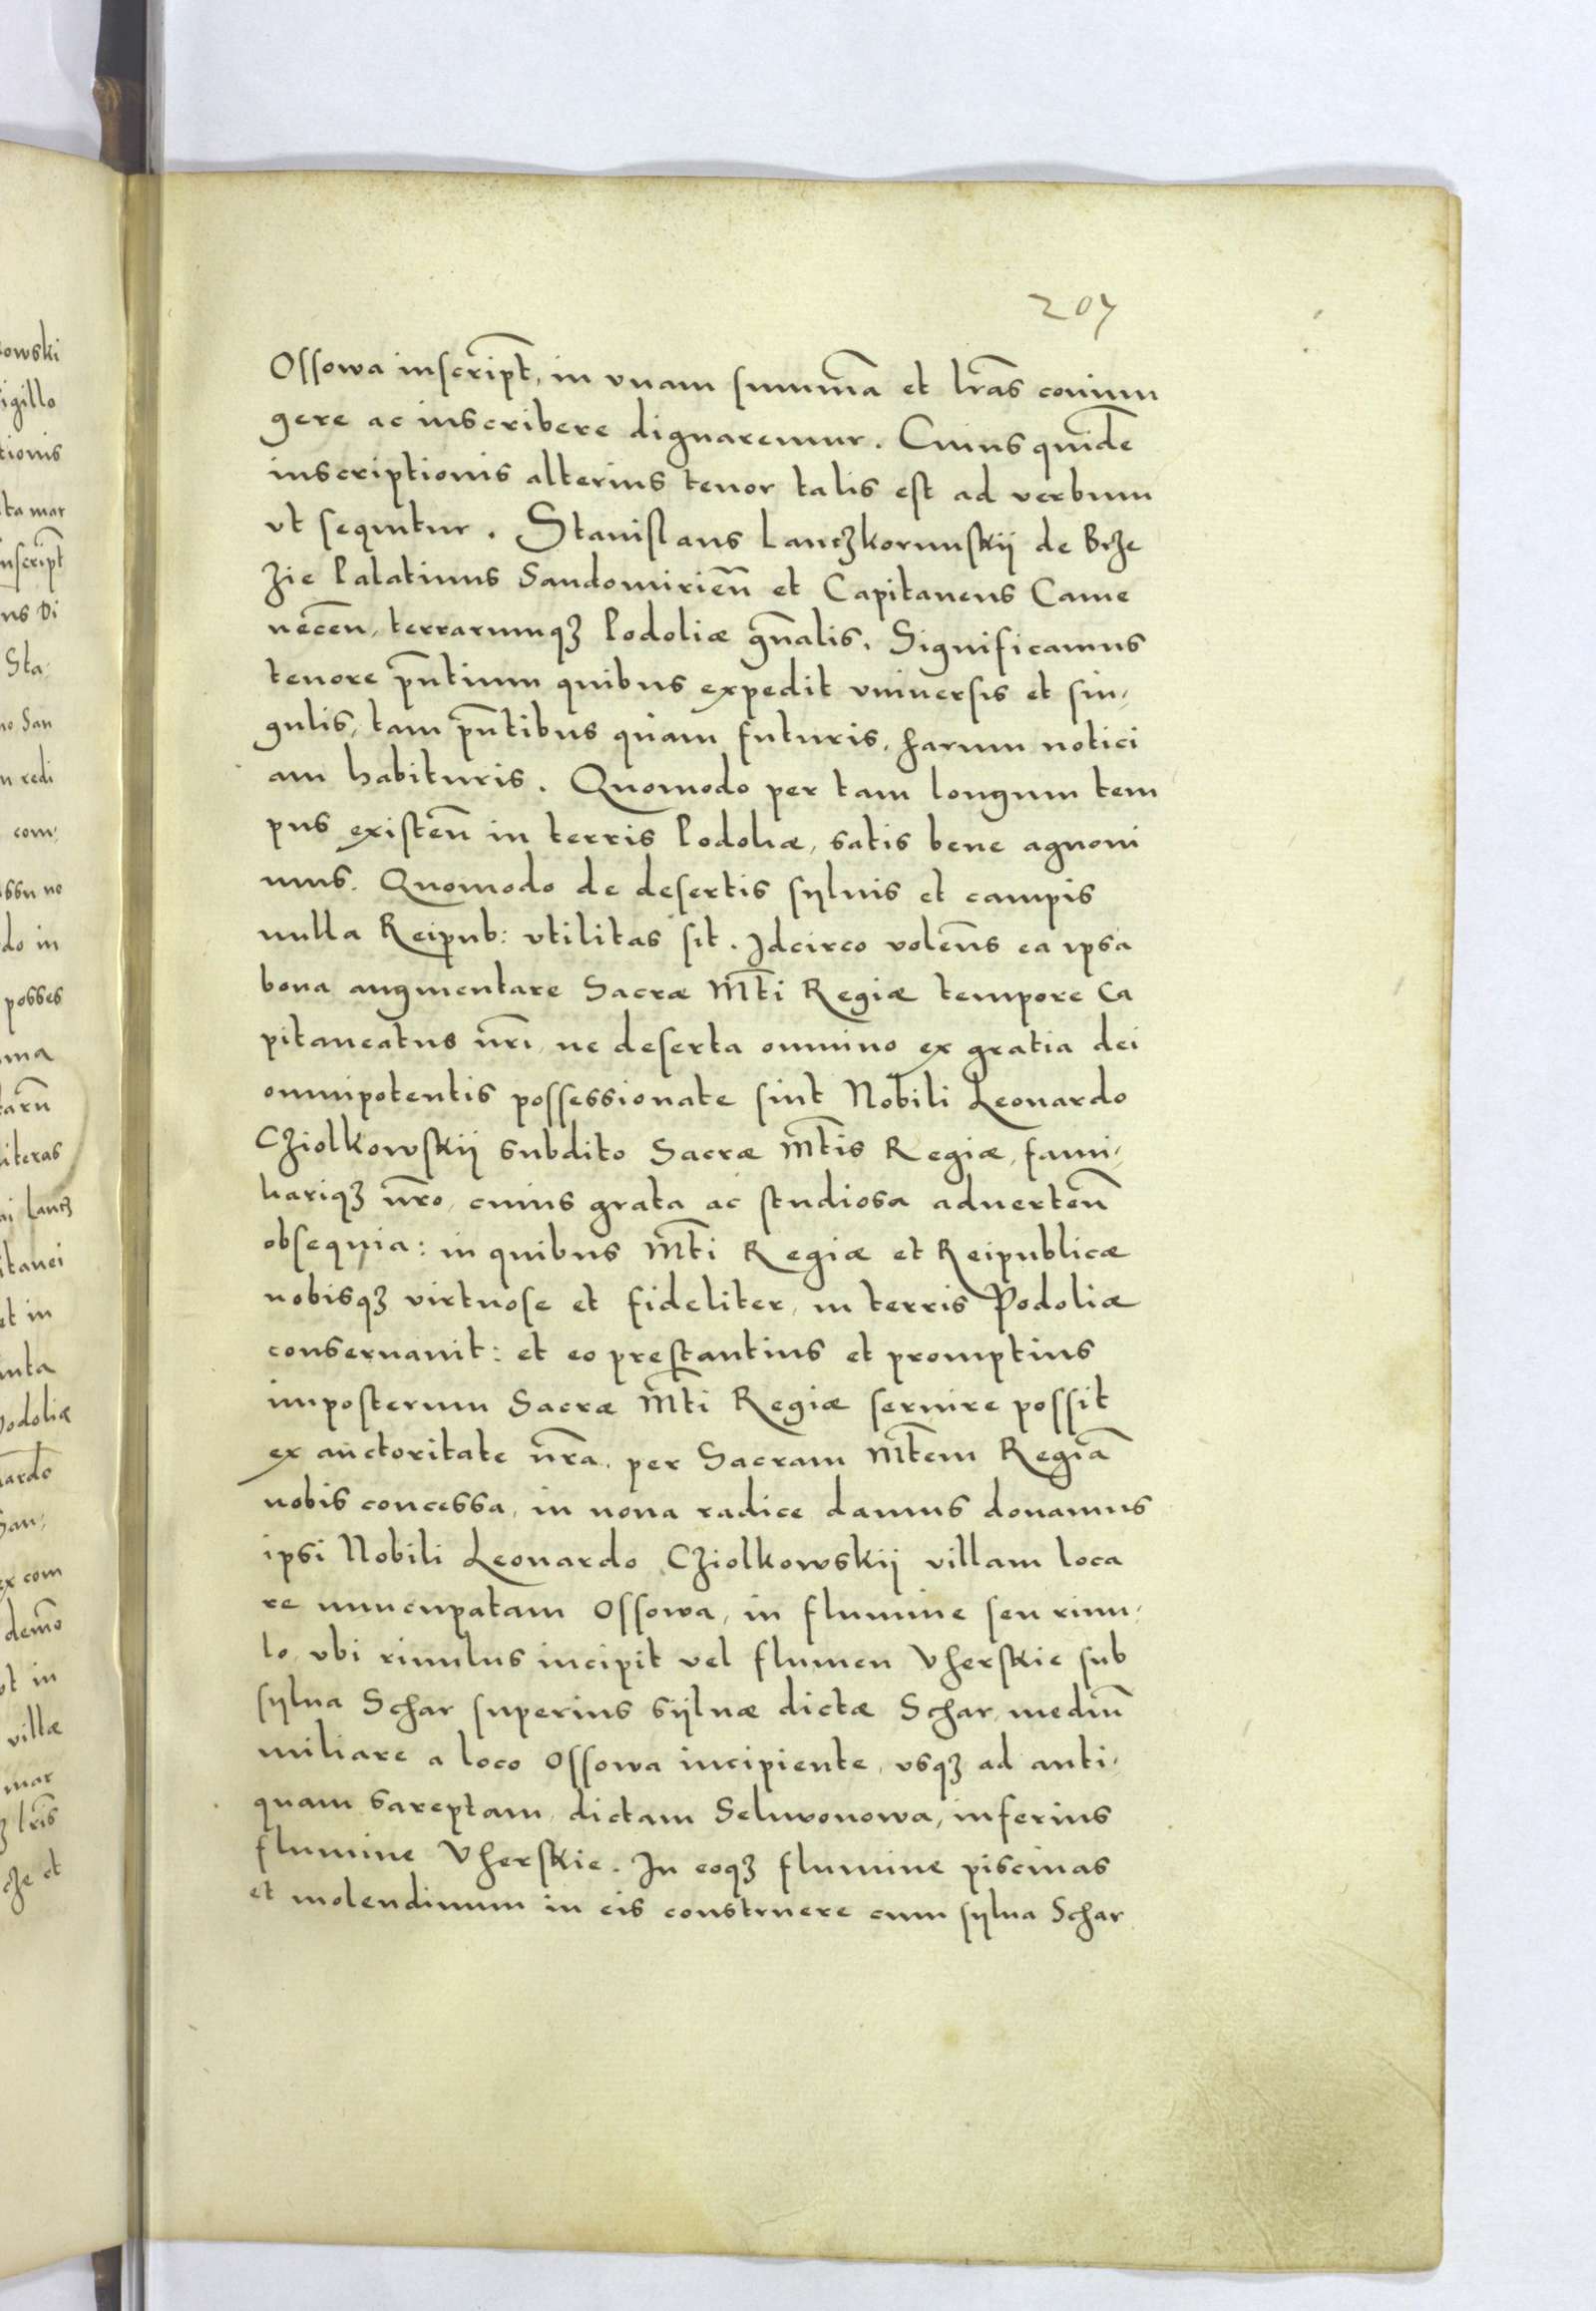 207
Ossowa inscript̃, in vnam summã et lr̃as coniun
gere ac inscribere dignaremur. Cuius quidẽ
inscriptionis alterius tenor talis est ad verbum
vt sequitur. Stanislaus Lanczkorunskij de Brze
zie Palatinus Sandomirieñ et Capitaneus Came
neceñ, terrarumqȝ Podoliæ gñalis. Significamus
tenore p̃ntium quibus expedit vniuersis et sin,
gulis, tam p̃ntibus quam futuris, harum notici
am habituris. Quomodo per tam longum tem
pus existeñ in terris Podoliæ, satis bene agnoui
mus. Quomodo de desertis syluis et campis
nulla Reipub: vtilitas sit. Idcirco voleñs ea ipsa
bona augmentare Sacræ Mt̃i Regiæ tempore Ca
pitaneatus nr̃i, ne deserta omnino ex gratia dei
omnipotentis possessionate sint Nobili Leonardo
Cziolkowskij subdito Sacræ Mt̃is Regiæ, fami,
liariqȝ nr̃o, cuius grata ac studiosa aduerteñ
obsequia: in quibus Mt̃i Regiæ et Reipublicæ
nobisqȝ virtuose et fideliter, in terris Podoliæ
conseruauit: et eo prestantius et promptius
imposterum Sacræ Mt̃i Regiæ seruire possit
ex auctoritate nr̃a, per Sacram Mt̃em Regiã
nobis concessa, in noua radice damus donamus
ipsi Nobili Leonardo Cziolkowskij villam loca
re nuncupatam Ossowa, in flumine seu riuu,
lo, vbi riuulus incipit vel flumen Vherskie sub
sylua Schar superius syluæ dictæ Schar, mediũ
miliare a loco Ossowa incipiente, vsqȝ ad anti,
quam sareptam, dictam Seluronowa, inferius
flumine Vherskie. In eoqȝ flumine piscinas
et molendinum in eis construere cum sylua Schar